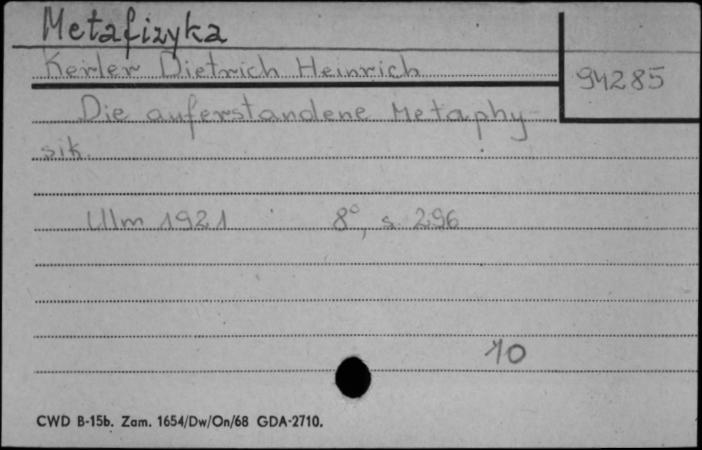 Metafizyka
Kerler Dietrich Heinrich
94285
Die auferstandene Metaphy-
sik.
Ulm 1921 8°, s. 296
10
CWD B-15b. Zam. 1654/Dw/On/68 GDA-2710.